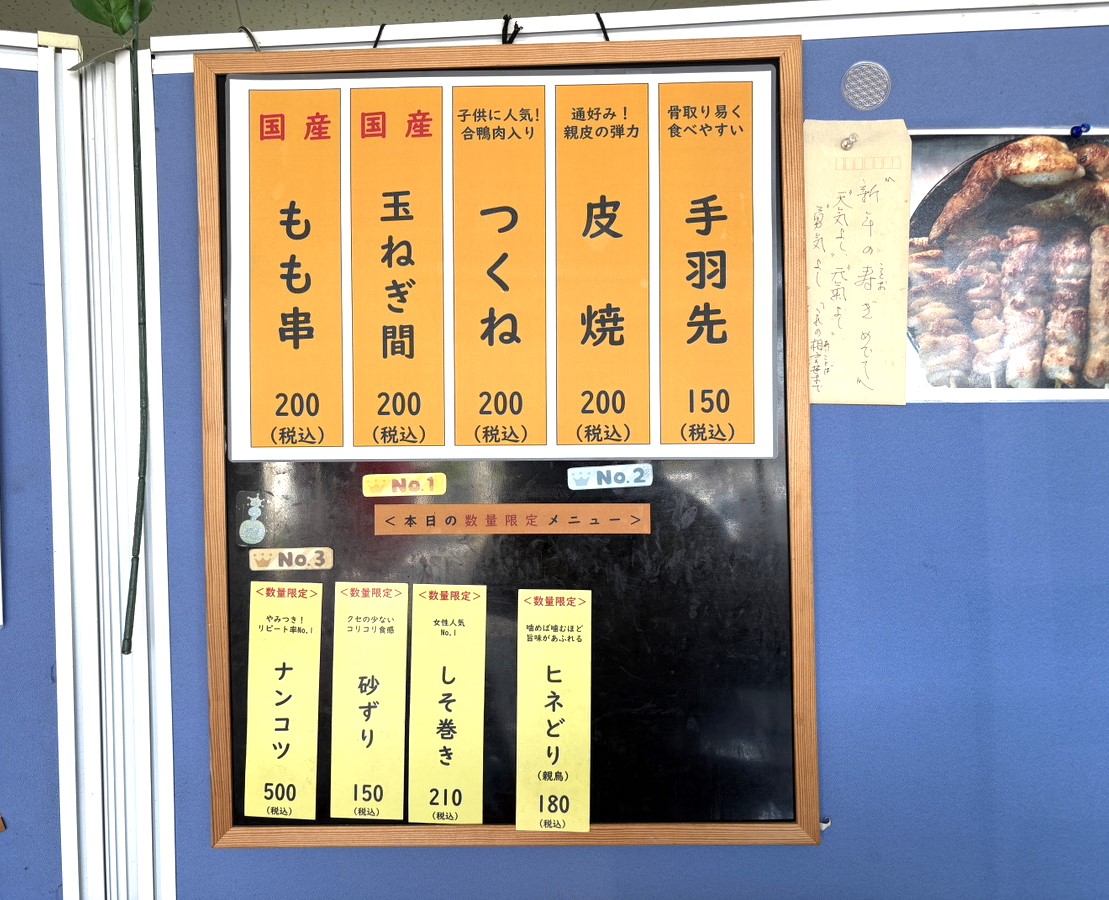 国産
もも串
200
(税込)
国産
玉ねぎ間
200
(税込)
子供に人気!
合鴨肉入り
つくね
200
(税込)
通好み!
親皮の弾力
皮焼
200
(税込)
骨取り易く
食べやすい
手羽先
150
(税込)
No.1
No.2
<本日の数量限定メニュー>
No.3
<数量限定>
やみつき!
リピート率No.1
ナンコツ
500
(税込)
<数量限定>
クセの少ない
コリコリ食感
砂ずり
150
(税込)
<数量限定>
女性人気
No.1
しそ巻き
210
(税込)
<数量限定>
噛めば噛むほど
旨味があふれる
ヒネどり
(親鳥)
180
(税込)
新年の寿ぎめでてし
天気よし、元気よし
勇気よし